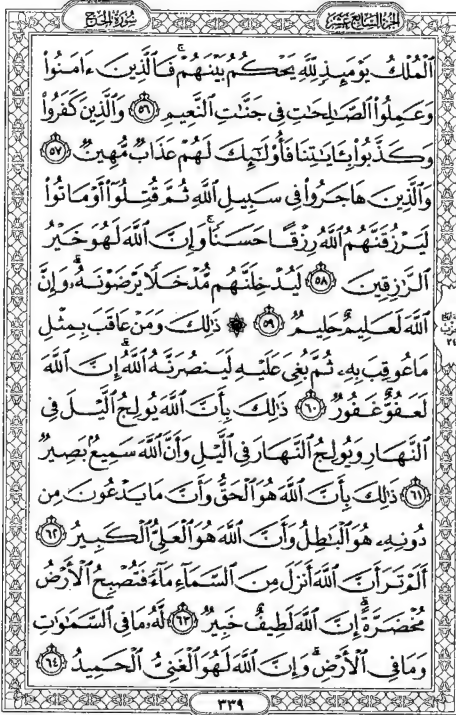 الجزء السابع عشر
سورة الحج
ٱلْمُلْكُ يَوْمَئِذٍ لِّلَّهِ يَحْكُمُ بَيْنَهُمْ ۚ فَٱلَّذِينَ ءَامَنُوا۟
وَعَمِلُوا۟ ٱلصَّـٰلِحَـٰتِ فِى جَنَّـٰتِ ٱلنَّعِيمِ ﴿٥٦﴾ وَٱلَّذِينَ كَفَرُوا۟
وَكَذَّبُوا۟ بِـَٔايَـٰتِنَا فَأُو۟لَـٰٓئِكَ لَهُمْ عَذَابٌ مُّهِينٌ ﴿٥٧﴾
وَٱلَّذِينَ هَاجَرُوا۟ فِى سَبِيلِ ٱللَّهِ ثُمَّ قُتِلُوٓا۟ أَوْ مَاتُوا۟
لَيَرْزُقَنَّهُمُ ٱللَّهُ رِزْقًا حَسَنًا ۚ وَإِنَّ ٱللَّهَ لَهُوَ خَيْرُ
ٱلرَّٰزِقِينَ ﴿٥٨﴾ لَيُدْخِلَنَّهُم مُّدْخَلًا يَرْضَوْنَهُۥ ۗ وَإِنَّ
ٱللَّهَ لَعَلِيمٌ حَلِيمٌ ﴿٥٩﴾ ۞ ذَٰلِكَ وَمَنْ عَاقَبَ بِمِثْلِ
مَا عُوقِبَ بِهِۦ ثُمَّ بُغِىَ عَلَيْهِ لَيَنصُرَنَّهُ ٱللَّهُ ۗ إِنَّ ٱللَّهَ
لَعَفُوٌّ غَفُورٌ ﴿٦٠﴾ ذَٰلِكَ بِأَنَّ ٱللَّهَ يُولِجُ ٱلَّيْلَ فِى
ٱلنَّهَارِ وَيُولِجُ ٱلنَّهَارَ فِى ٱلَّيْلِ وَأَنَّ ٱللَّهَ سَمِيعٌۢ بَصِيرٌ
﴿٦١﴾ ذَٰلِكَ بِأَنَّ ٱللَّهَ هُوَ ٱلْحَقُّ وَأَنَّ مَا يَدْعُونَ مِن
دُونِهِۦ هُوَ ٱلْبَـٰطِلُ وَأَنَّ ٱللَّهَ هُوَ ٱلْعَلِىُّ ٱلْكَبِيرُ ﴿٦٢﴾
أَلَمْ تَرَ أَنَّ ٱللَّهَ أَنزَلَ مِنَ ٱلسَّمَآءِ مَآءً فَتُصْبِحُ ٱلْأَرْضُ
مُخْضَرَّةً ۗ إِنَّ ٱللَّهَ لَطِيفٌ خَبِيرٌ ﴿٦٣﴾ لَّهُۥ مَا فِى ٱلسَّمَـٰوَٰتِ
وَمَا فِى ٱلْأَرْضِ ۗ وَإِنَّ ٱللَّهَ لَهُوَ ٱلْغَنِىُّ ٱلْحَمِيدُ ﴿٦٤﴾
٣٣٩